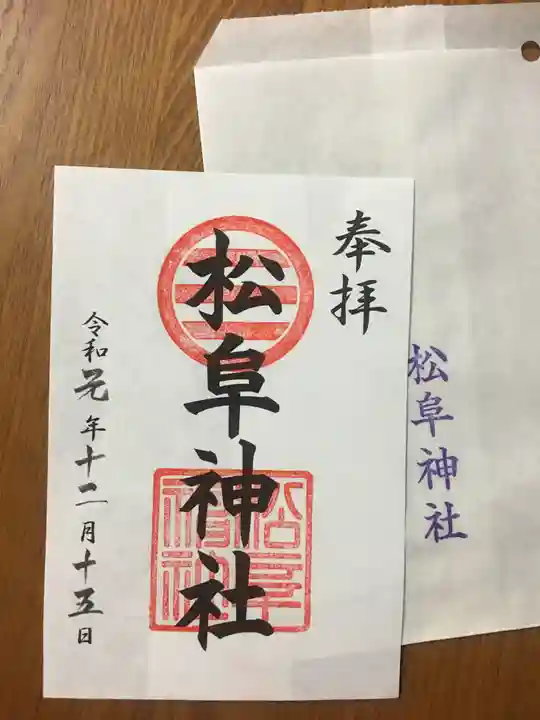 奉拝
松阜神社
令和元年十二月十五日
松阜神社